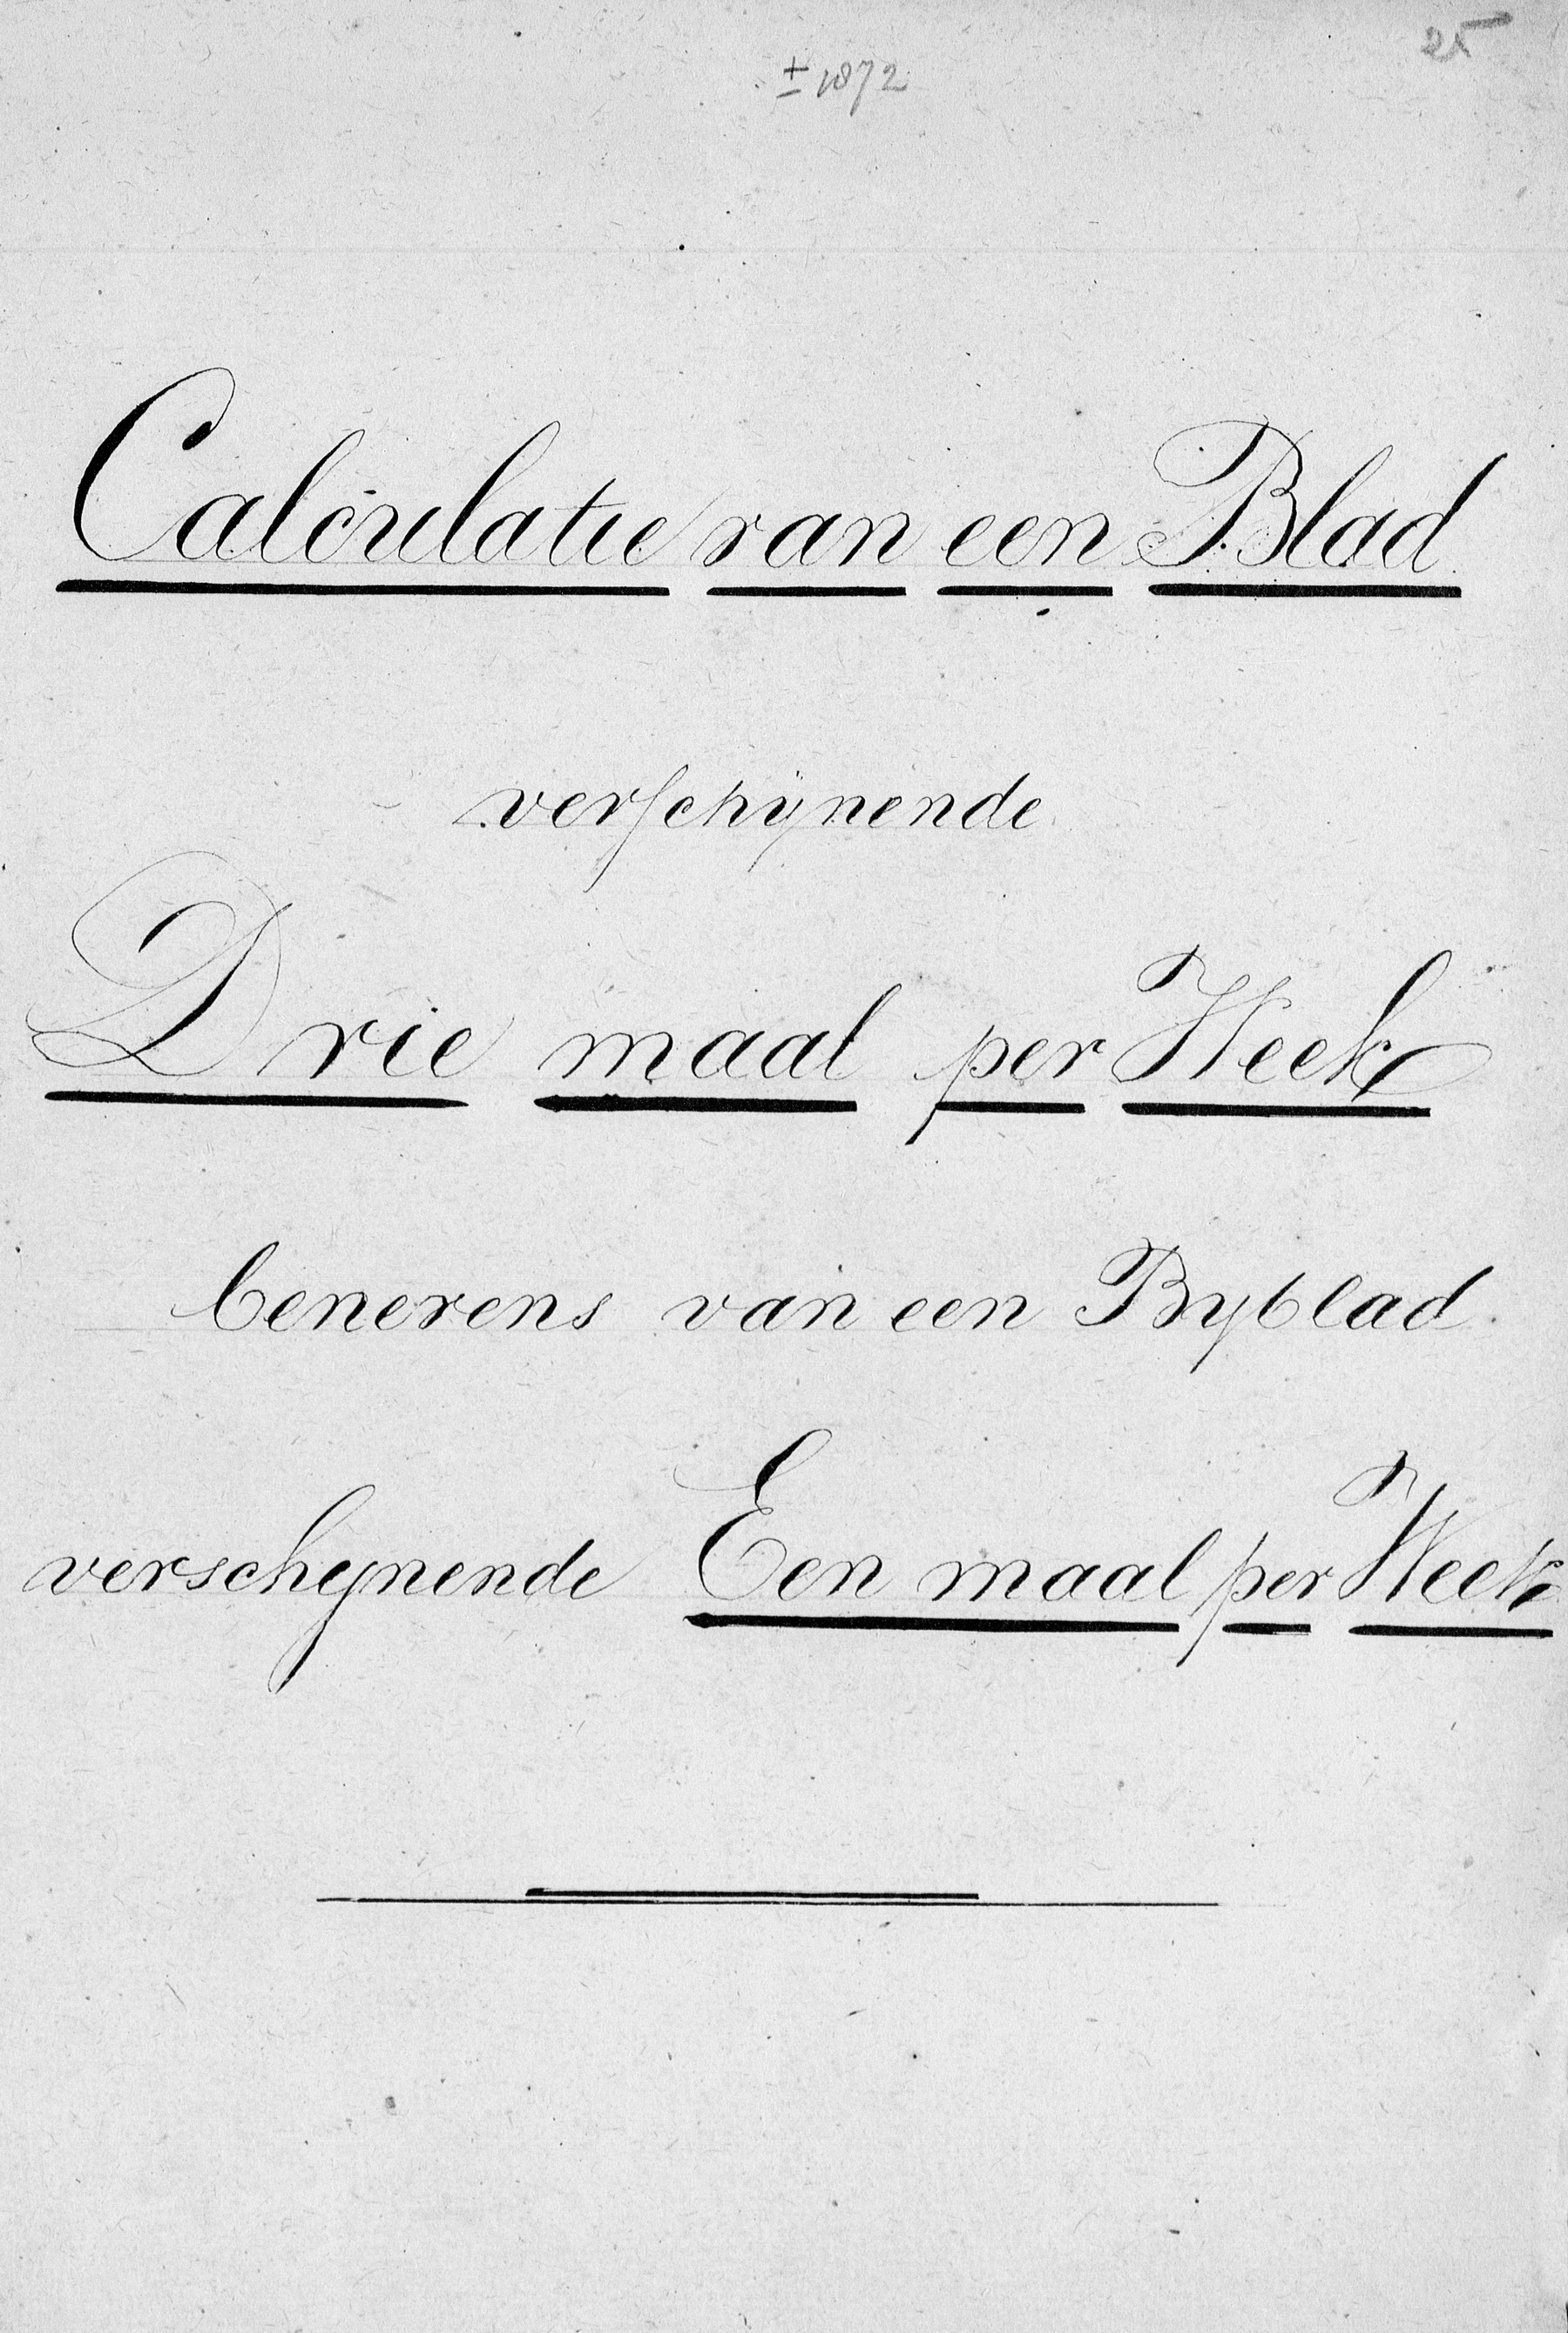 25
± 1872
Calculatie van een Blad
verschijnende
Drie maal per Week
benevens van een Byblad
verschynende Een maal per Week